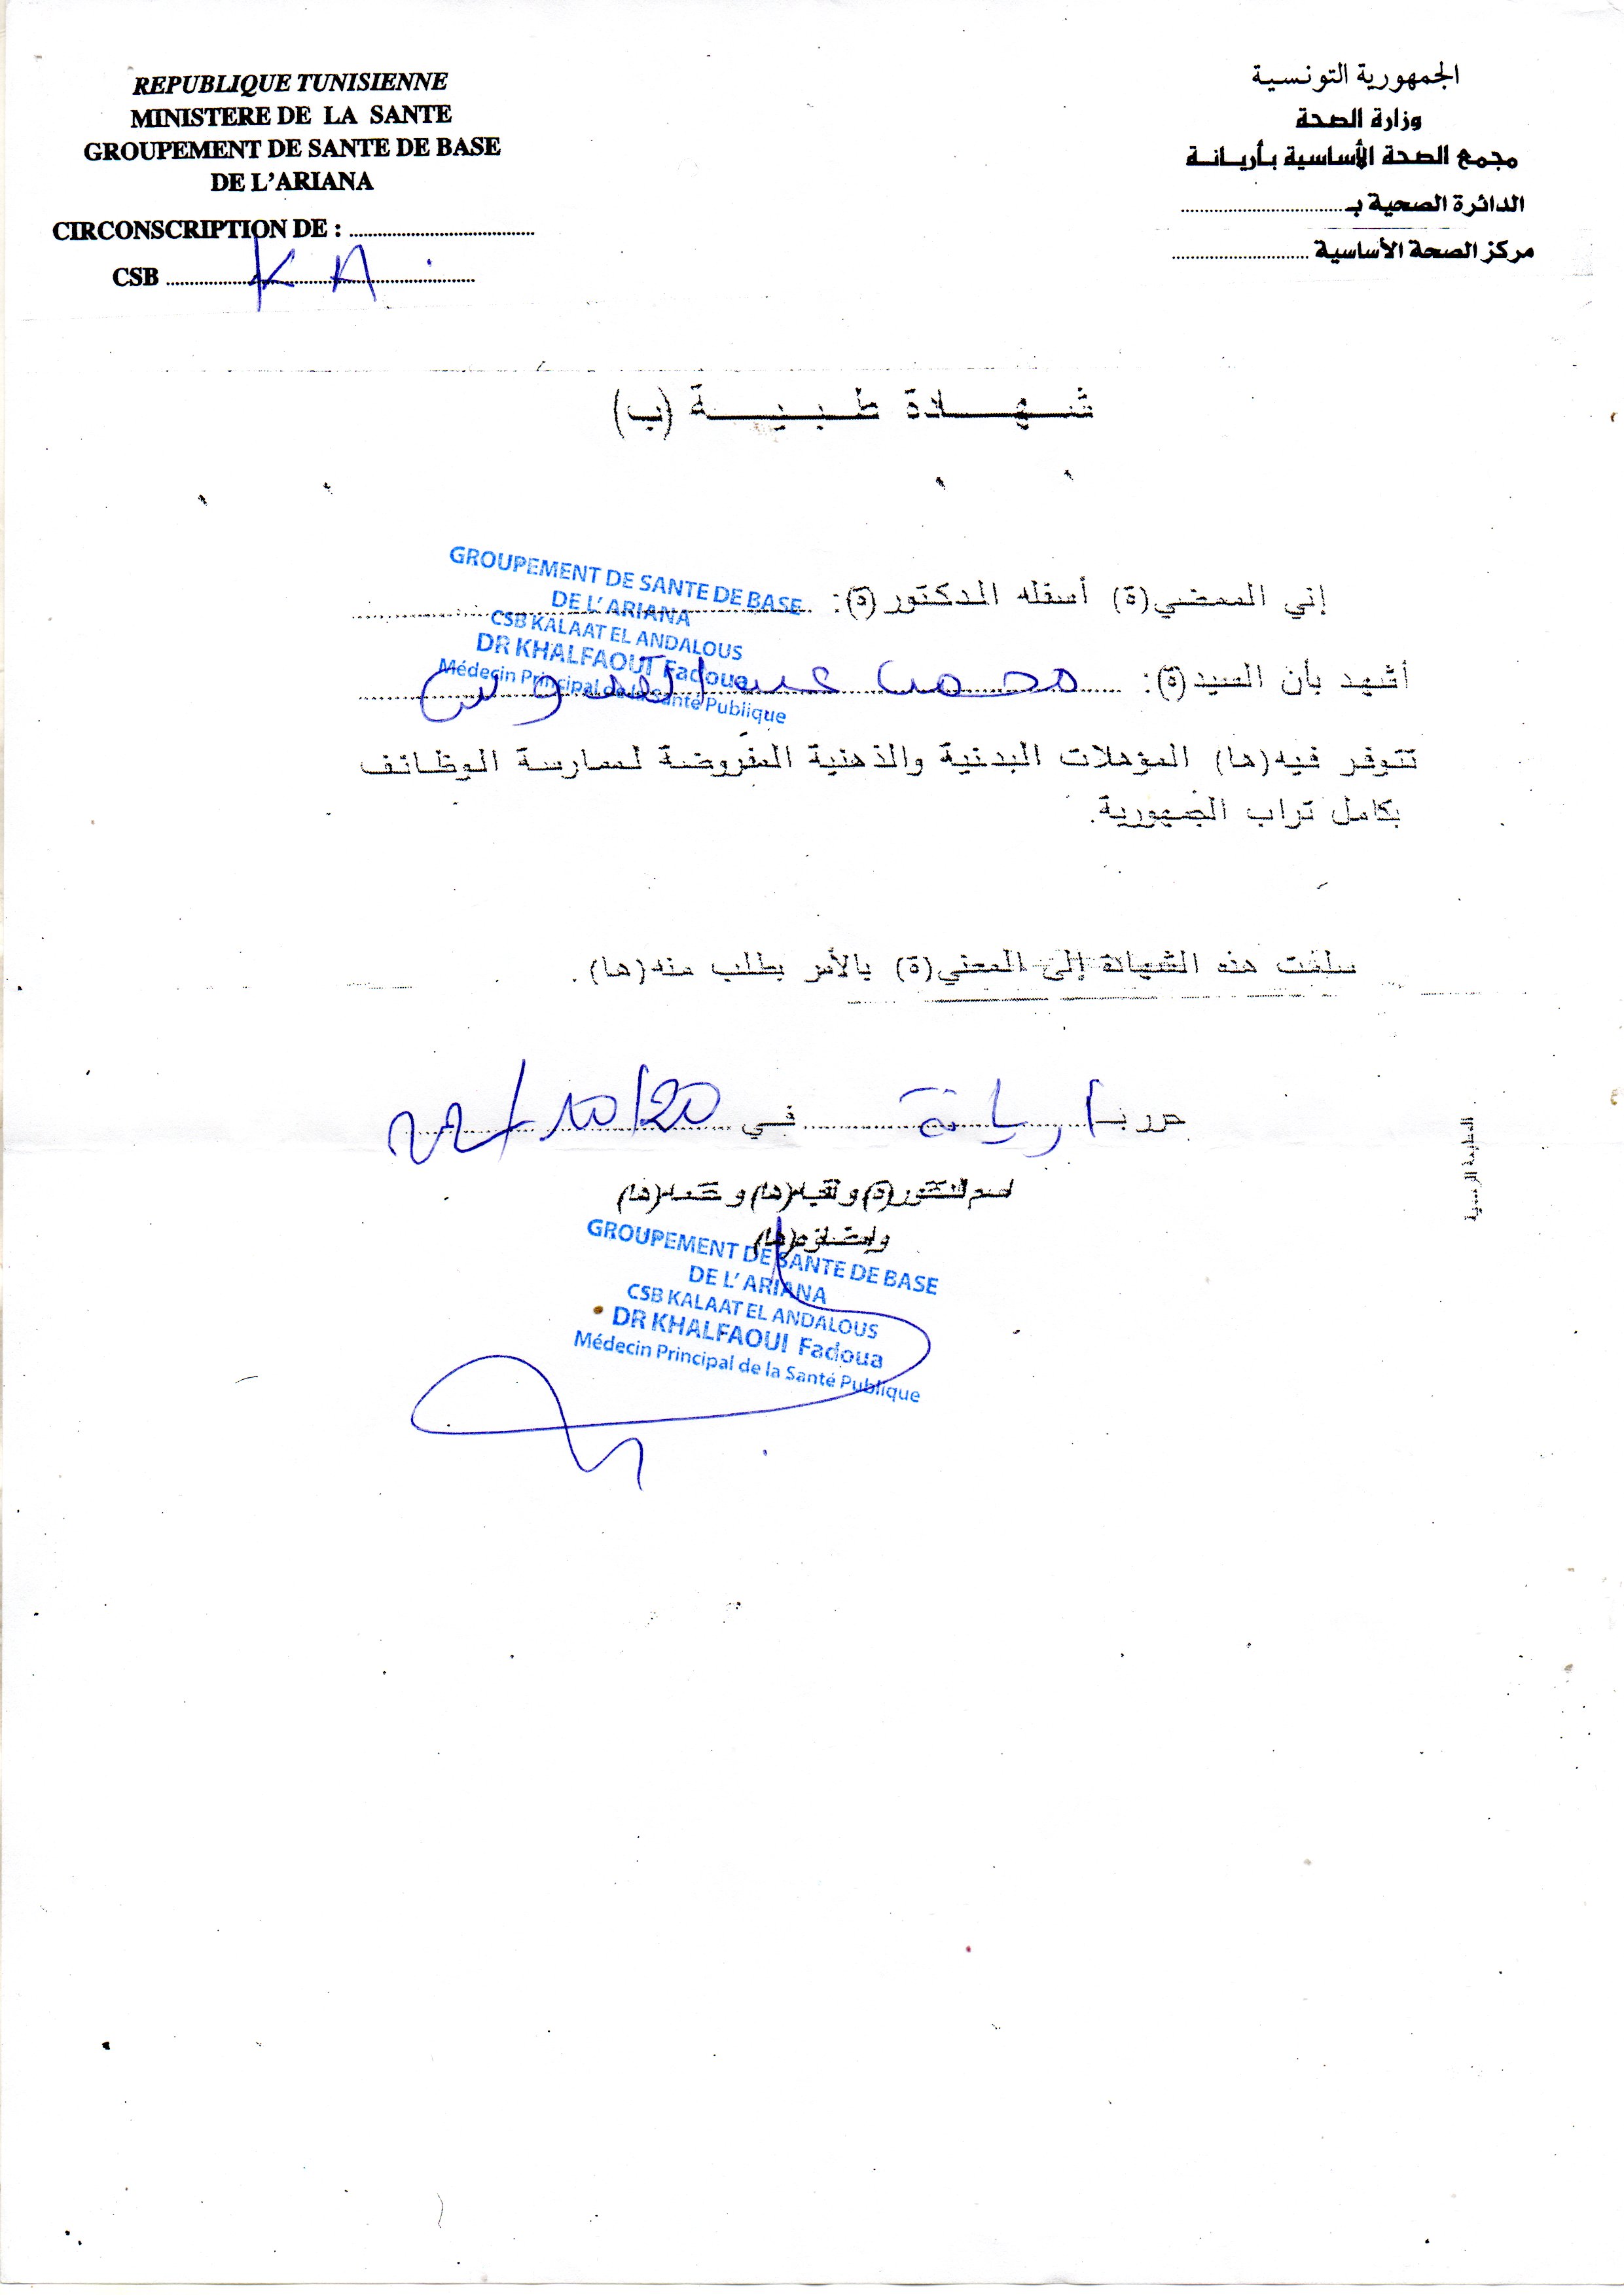 REPUBLIQUE TUNISIENNE
MINISTERE DE LA SANTE
GROUPEMENT DE SANTE DE BASE
DE L'ARIANA
CIRCONSCRIPTION DE : ..............................
CSB .............................. K A .
الجمهورية التونسية
وزارة الصحة
مجمع الصحة الأساسية بأريانة
الدائرة الصحية بـ..............................
مركز الصحة الأساسية ..............................
شهادة طبية (ب)
إني الممضي(ة) أسفله الدكتور(ة): ..............................
GROUPEMENT DE SANTE DE BASE
DE L' ARIANA
CSB KALAAT EL ANDALOUS
DR KHALFAOUI Fadoua
Médecin Principal de la Santé Publique
أشهد بأن السيد(ة): محمد عبد القدوس
تتوفر فيه(ها) المؤهلات البدنية والذهنية المفروضة لممارسة الوظائف
بكامل تراب الجمهورية.
سلمت هذه الشهادة إلى المعني(ة) بالأمر بطلب منه(ها).
حرر بـاريانة في 20/10/22
اسم الدكتور(ة) ولقبه(ها) و ختمه(ها)
وإمضاؤه(ها)
GROUPEMENT DE SANTE DE BASE
DE L' ARIANA
CSB KALAAT EL ANDALOUS
DR KHALFAOUI Fadoua
Médecin Principal de la Santé Publique
المطبعة الرسمية